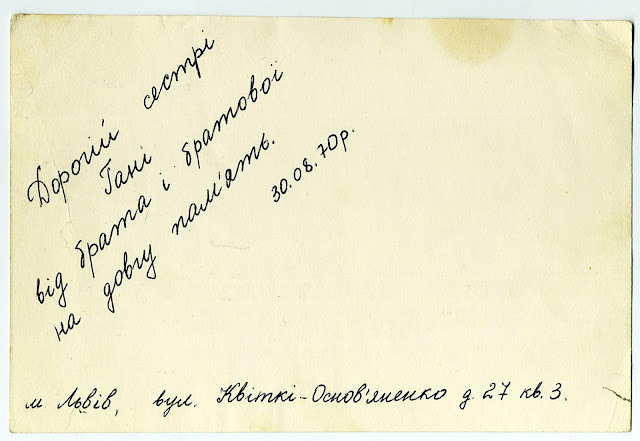 Дорогій сестрі
Гані
від брата і братової
на довгу пам'ять.
30.08.70р.
м. Львів, вул. Квіткі-Основ'яненко д. 27 кв. 3.